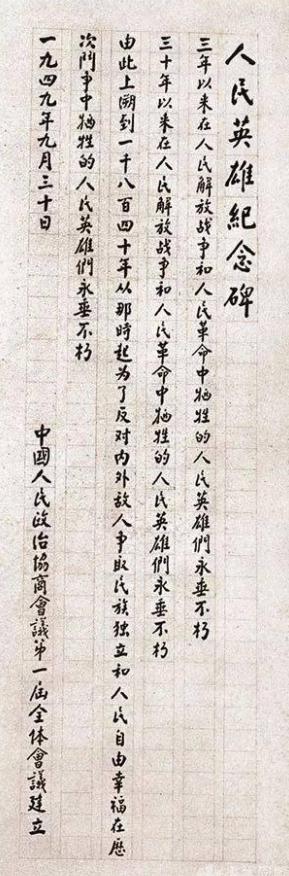 人民英雄紀念碑
三年以来在人民解放战争和人民革命中牺牲的人民英雄們永垂不朽
三十年以来在人民解放战争和人民革命中牺牲的人民英雄們永垂不朽
由此上溯到一千八百四十年从那時起为了反对内外敌人争取民族独立和人民自由幸福在歷
次鬥争中牺牲的人民英雄們永垂不朽
一九四九年九月三十日 中國人民政治協商會議第一届全体會議建立